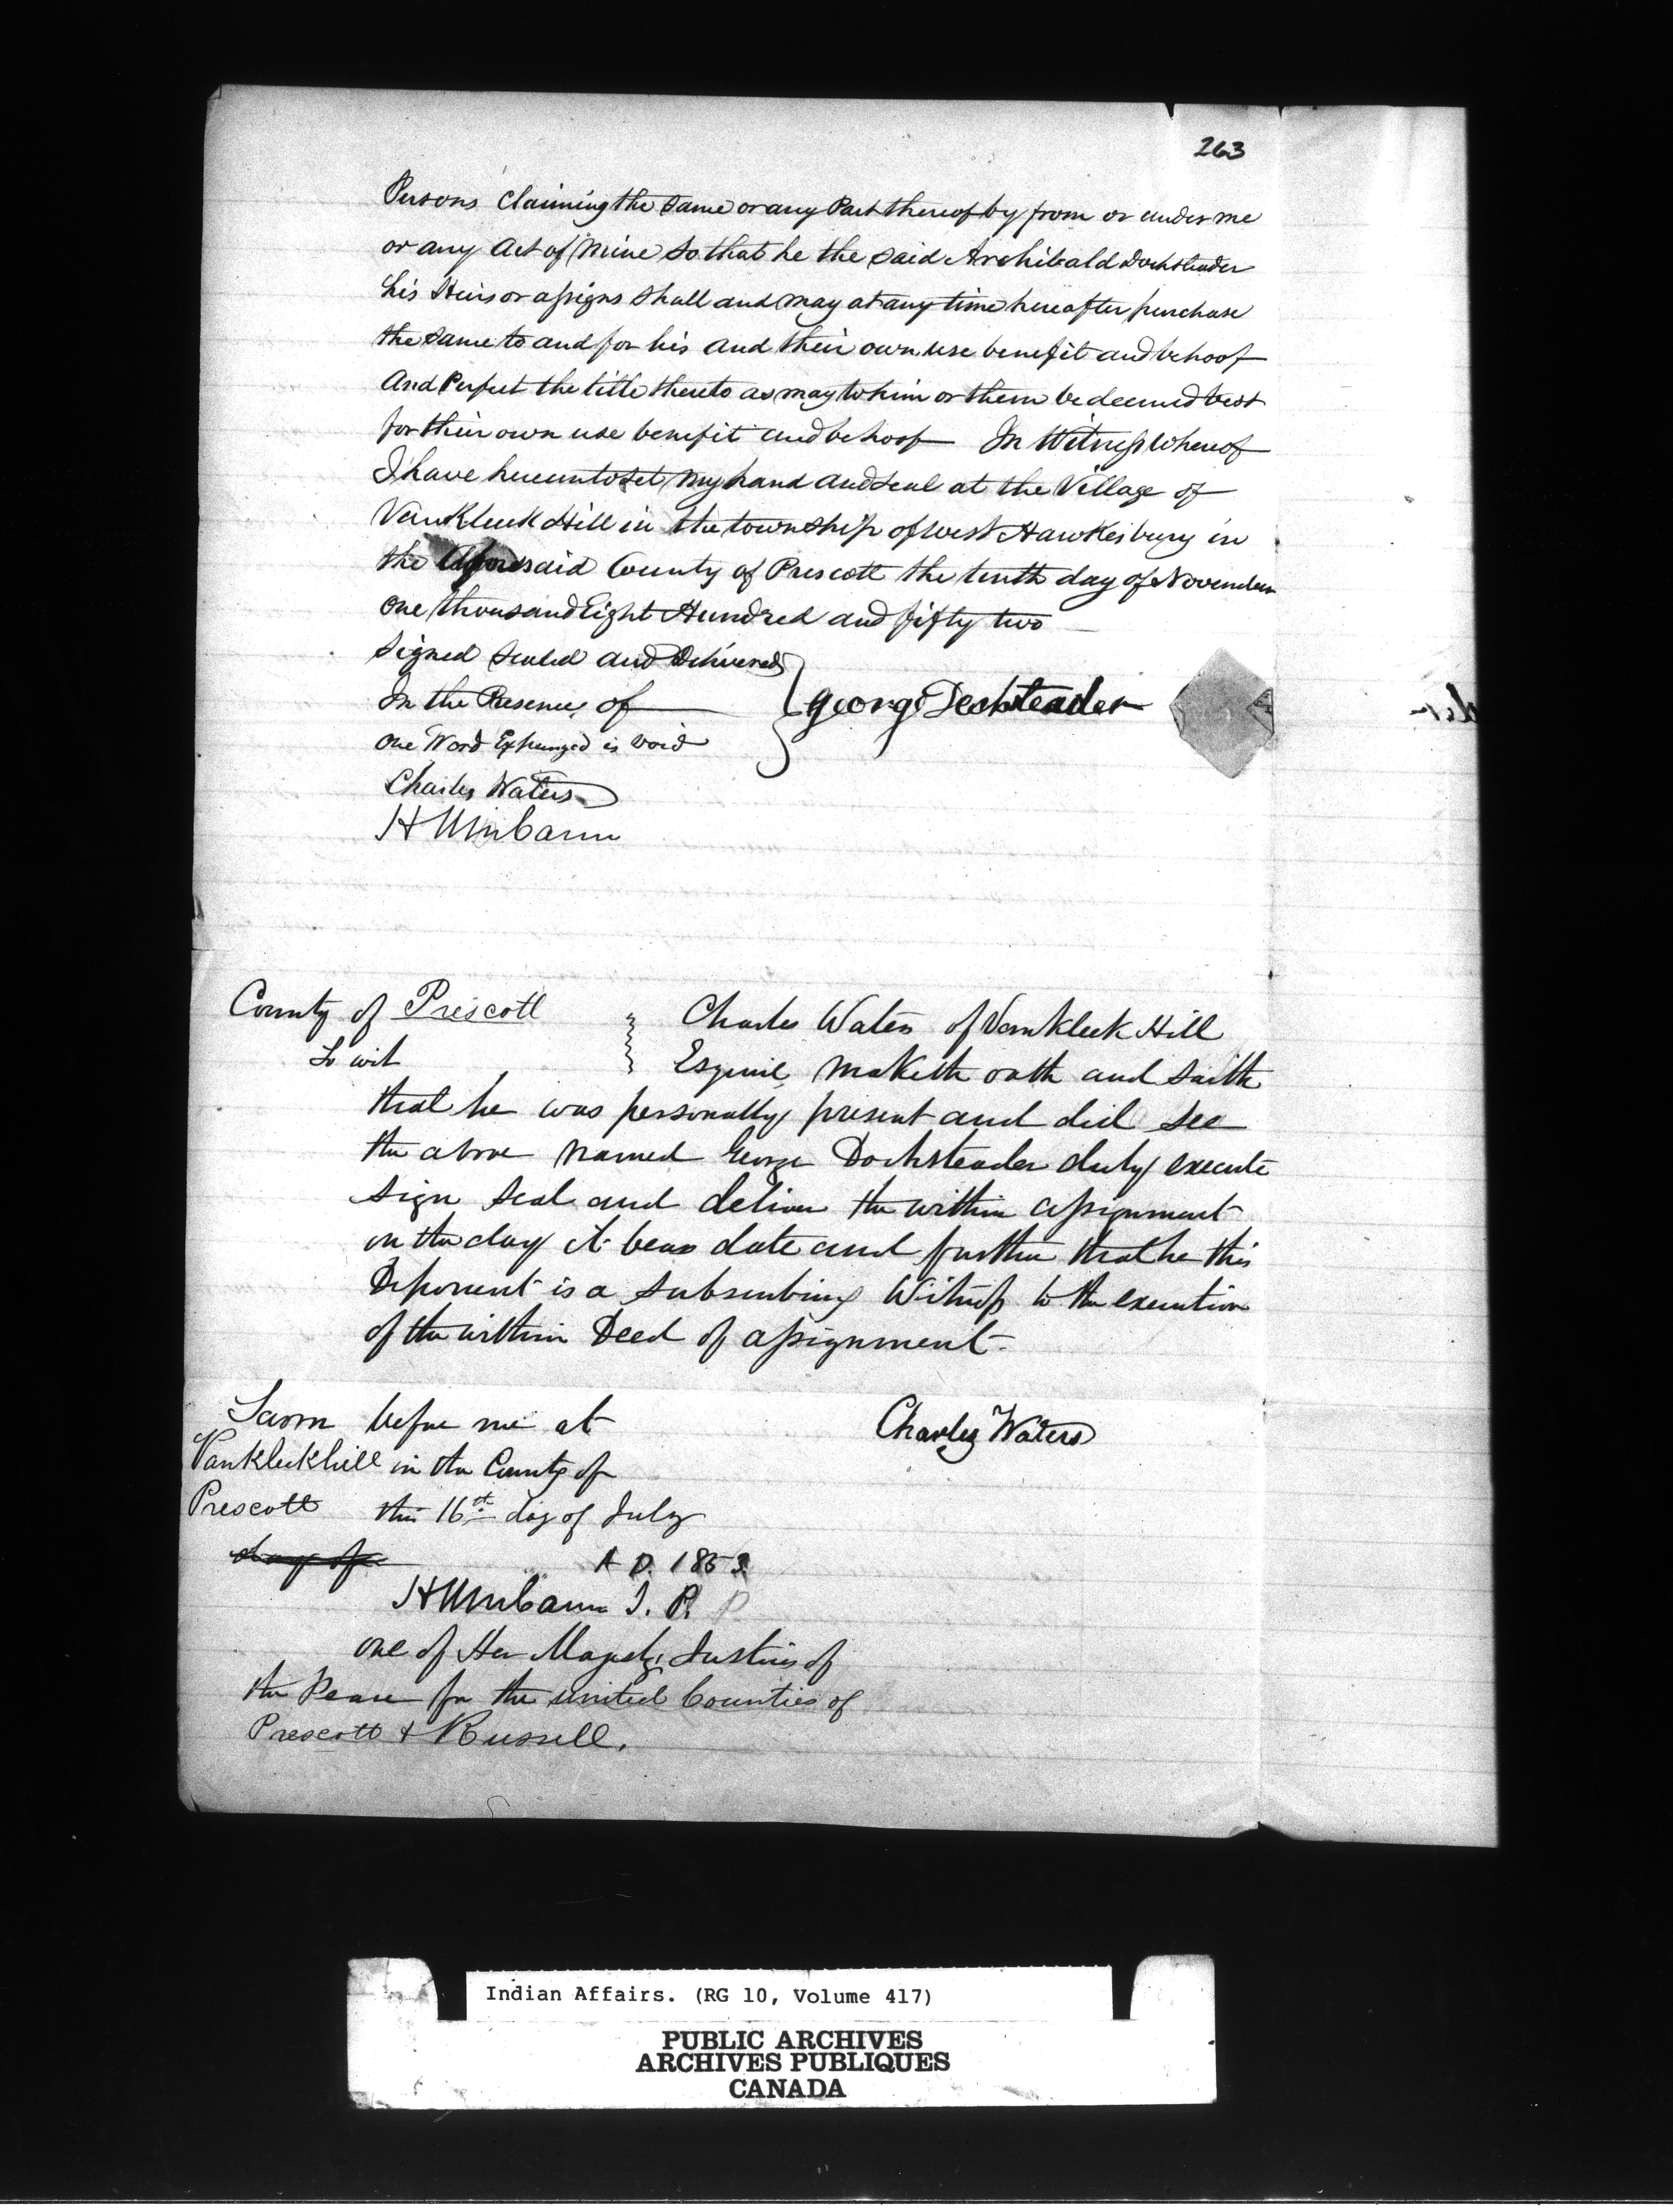 263
Persons Claiming the Same or any Part thereof by from or under me
or any Act of Mine So that he the said Archibald Dochsteader
his Heirs or assigns Shall and may at any time hereafter purchase
the same to and for his and their own use benefit and behoof
And Perfect the title thereto as may to him or them be deemed best
for their own use benefit and behoof In Witness Whereof
I have hereunto set my hand and seal at the Village of
VanKleek Hill in the township of West Hawkesbury in
the Aforesaid County of Prescott the tenth day of November
One thousand Eight Hundred and fifty two
Signed Sealed and Delivered
In the Presence of
George Dochsteader
One Word Expunged is void
Charles Waters
H
County of Prescott
To wit
Charles Waters of Vankleek Hill
Esquire, maketh oath and saith
that he was personally present and did see
the above named George Dochsteader duly execute
sign seal and deliver the within assignment
on the day it bears date and further that he this
Deponent is a subscribing Witness to the execution
of the within Deed of assignment.
Sworn before me at
Vankleekhill in the County of
Prescott this 16th day of July
day of
A D. 1853
Charles Waters
H J. P.
one of Her Majesty's Justices of
the Peace for the united Counties of
Prescott & Russell.
Indian Affairs. (RG 10, Volume 417)
PUBLIC ARCHIVES
ARCHIVES PUBLIQUES
CANADA